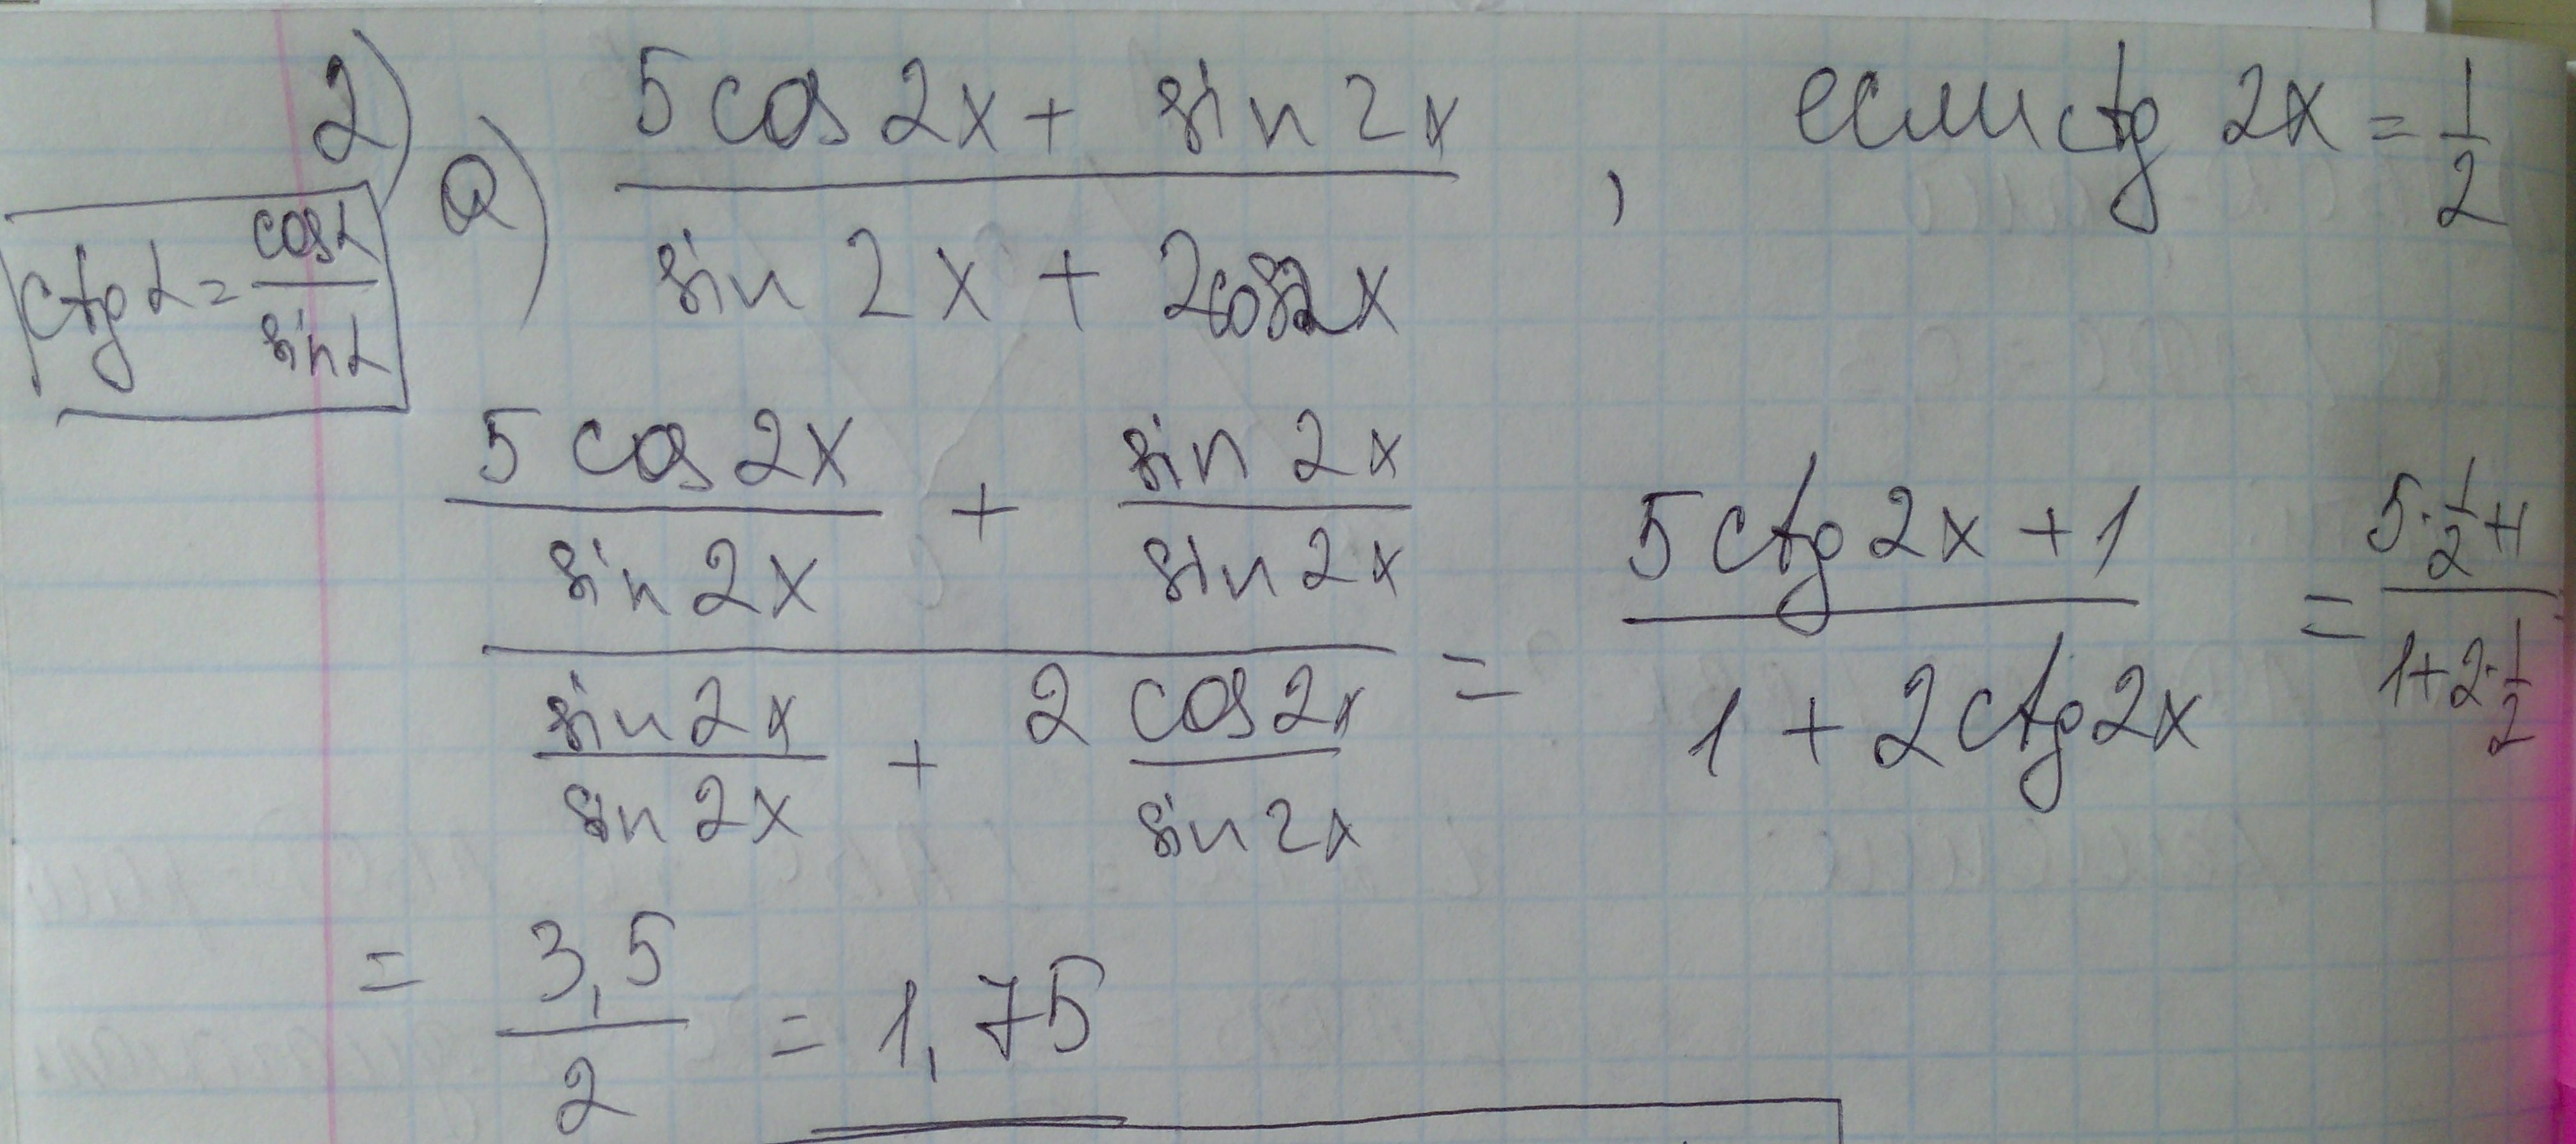 2) a) (5cos2x + sin2x)/(sin2x + 2cos2x), если ctg 2x = 1/2
ctgα = cosα/sinα
(5cos2x/sin2x + sin2x/sin2x)/(sin2x/sin2x + 2 cos2x/sin2x) = (5ctg2x + 1)/(1 + 2ctg2x) = (5·1/2+1)/(1+2·1/2)
= 3,5/2 = 1,75